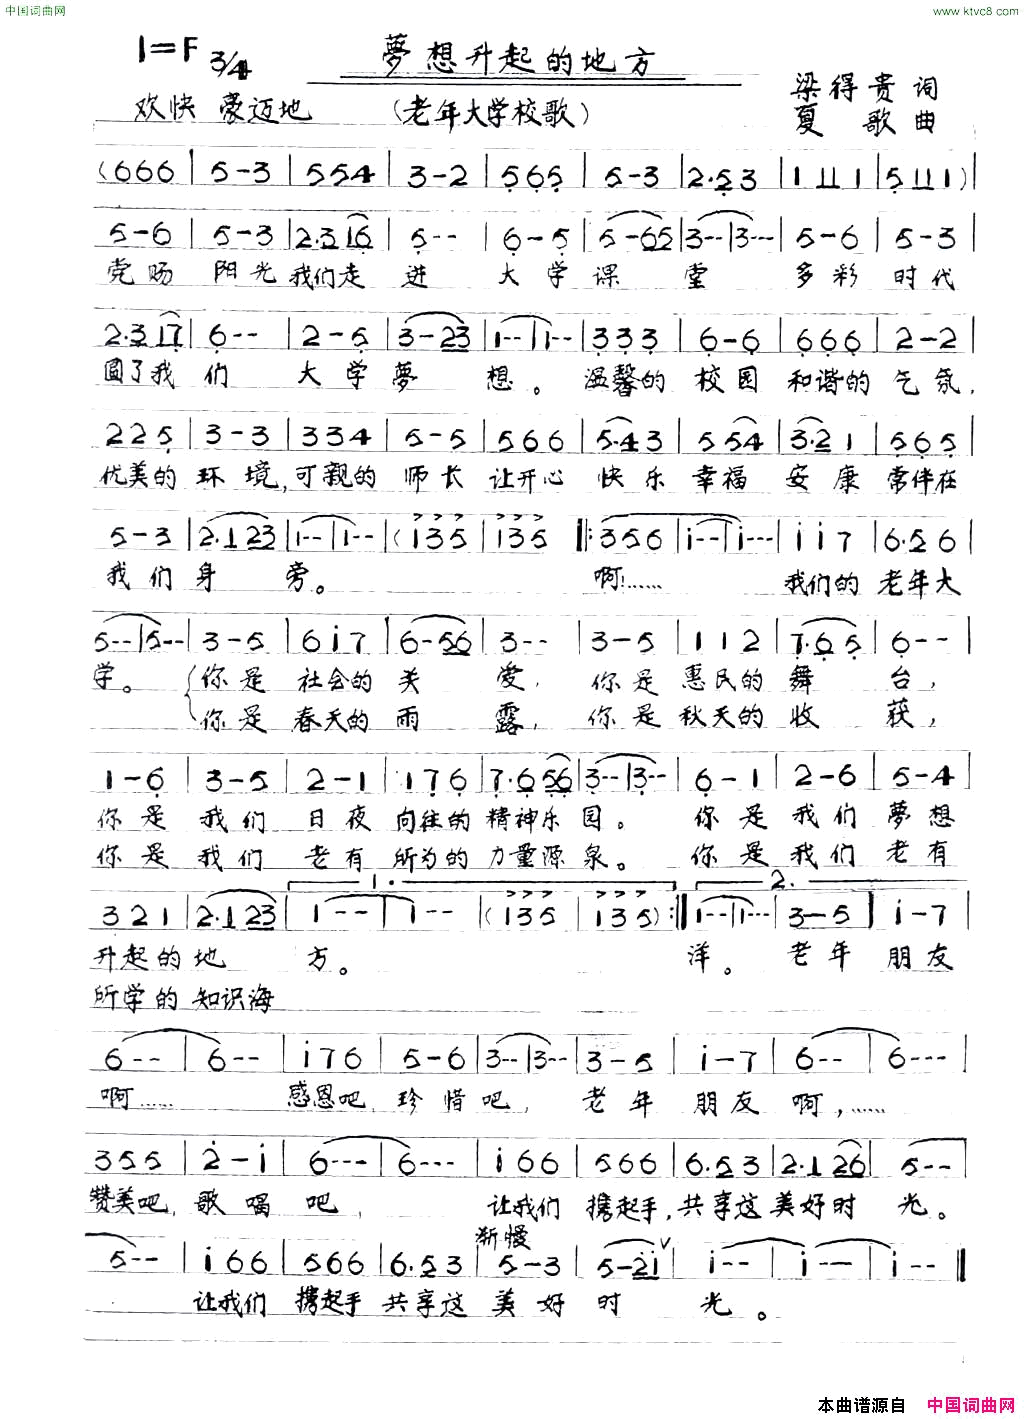 中国词曲网
www.ktvc8.com
1=F 3/4
夢想升起的地方
欢快 豪迈地
(老年大学校歌)
梁得贵 词
夏歌 曲
(666 | 5-3 | 554 | 3-2 | 565 | 5-3 | 2·53 | 1 11 1 | 5 11 1)
5-6 | 5-3 | 2·3 16 | 5-- | 6-5 | 5-65 | 3-- | 3-- | 5-6 | 5-3 |
党赐 阳光我们走 进 大学课 堂 多彩 时代
2·3 17 | 6-- | 2-5 | 3-23 | 1-- | 1-- | 333 | 6-6 | 666 | 2-2 |
圆了我 们 大学夢 想。温馨的 校园 和谐的 气氛,
225 | 3-3 | 334 | 5-5 | 566 | 5·43 | 554 | 3·21 | 565 |
优美的 环境,可親的 师长 让开心 快乐 幸福 安康 常伴在
5-3 | 2·1 23 | 1-- | 1-- | (i35 | i35 ‖: 356 | i-- | i--- | i i 7 | 6·56 |
我们身 旁。 啊!…… 我们的 老年大
5-- | 5--- | 3-5 | 6i7 | 6-56 | 3-- | 3-5 | 112 | 7·65 | 6-- |
学。 你是 社会的 关 爱, 你是 惠民的 舞 台,
你是 春天的 雨 露, 你是 秋天的 收 获,
1-6 | 3-5 | 2-1 | 176 | 7·6 56 | 3-- | 3-- | 6-1 | 2-6 | 5-4 |
你是 我们 日夜 向往的 精神乐 园。 你是 我们 夢想
你是 我们 老有 所为的 力量源 泉。 你是 我们 老有
1. 2.
321 | 2·1 23 | 1-- | 1-- | (i35 | i35) :‖ 1-- | 1--- | 3-5 | i-7 |
升起的地 方。 洋。 老年 朋友
所学的 知识海
6-- | 6-- | i76 | 5-6 | 3-- | 3-- | 3-5 | i-7 | 6-- | 6--- |
啊…… 感恩吧,珍惜吧, 老年 朋友 啊,……
355 | 2-i | 6--- | 6--- | i66 | 566 | 6·53 | 2·1 26 | 5-- |
赞美吧,歌唱吧, 让我们 携起手,共享这 美好时 光。
渐慢
5-- | i66 | 566 | 6·53 | 5-3 | 5-2i | i-- | i-- | i-- ‖
让我们 携起手 共享这 美好 时 光。
本曲谱源自 中国词曲网